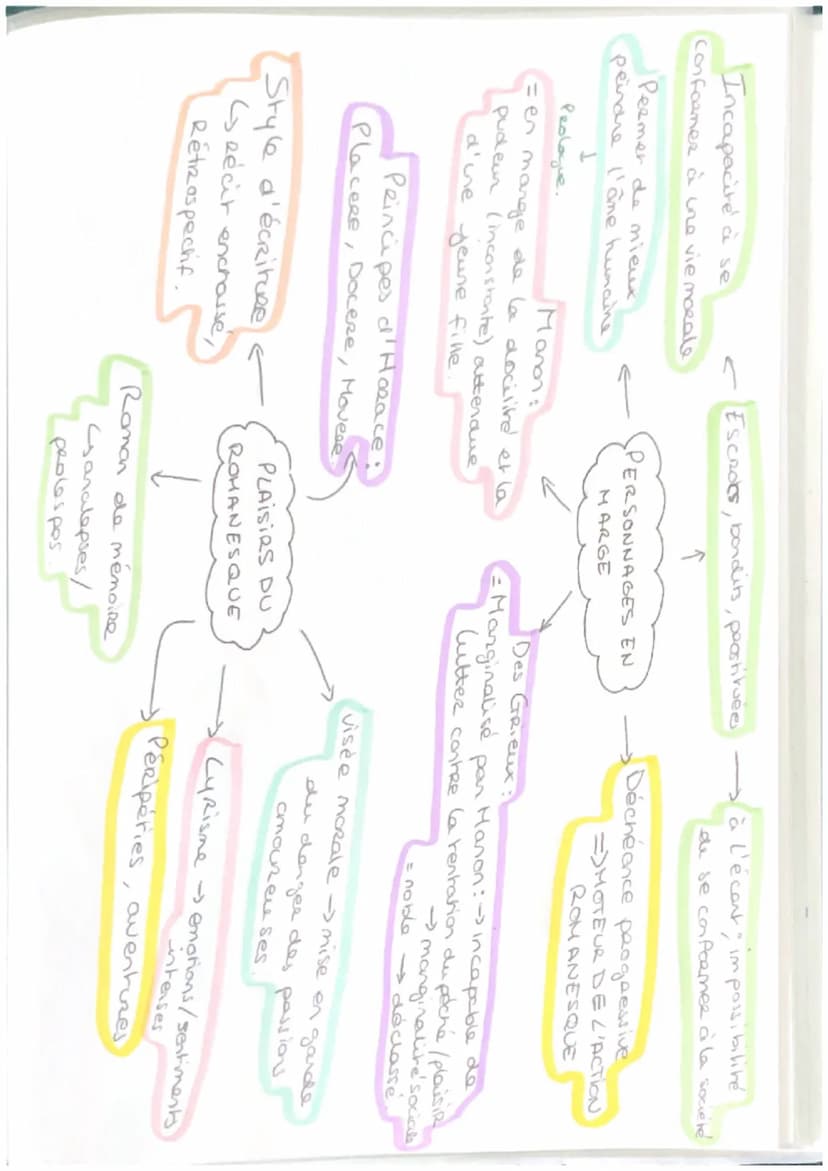 Incapacité à se
conformer à une vie morale
Escrocs, bandits, prostituées
à l'écart, impossibilité
de se conformer à la société
Permet de mieux
peindre l'âme humaine
Prologue.
PERSONNAGES EN
MARGE
Déchéance progressive
=> MOTEUR DE L'ACTION
ROMANESQUE
Manon:
= en marge de la docilité et la
pudeur (inconstante) attendue
d'une jeune fille.
Des Grieux:
= Marginalisé par Manon: -> incapable de
lutter contre la tentation du péché/plaisir
-> marginalité sociale
= noble -> déclassé
Principes d'Horace:
Placere, Docere, Movere
Style d'écriture
↳ récit enchassé,
Rétrospectif.
PLAISIRS DU
ROMANESQUE
visée morale -> mise en garde
du danger des passions
amoureuses.
Roman de mémoire
↳ analepses/
prolespses.
Lyrisme -> émotions/sentiments
intenses
Péripéties, aventures